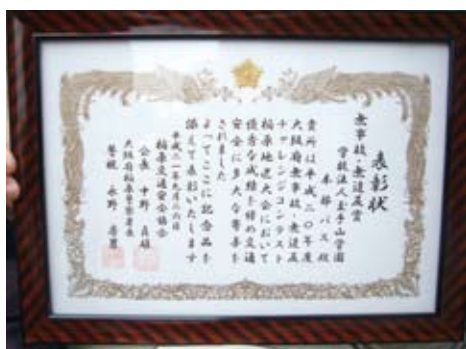 表彰状
無事故・無違反賞
学校法人玉手山学園
本部バス殿
貴所は平成二〇年度
大阪府無事故・無違反
チャレンジコンテスト
柏原地区大会において
優秀な成績を収め交通
安全に多大な寄与を
されました
よってここに記念品を
添えて表彰いたします
平成二一年九月二六日
柏原交通安全協会
会長 中野
大阪府柏原警察署長
警視 永野